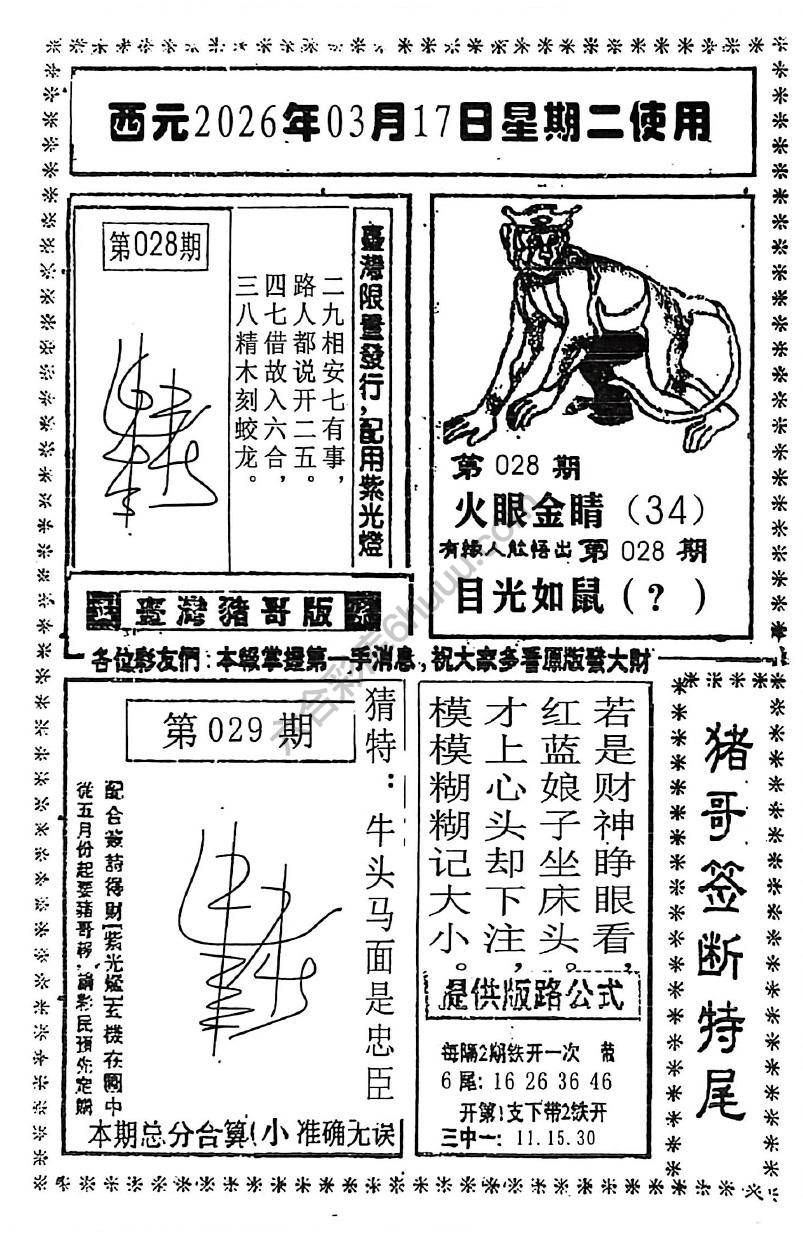 西元2026年03月17日星期二使用
第028期
臺灣限量發行,配用紫光燈
二九相安七有事,
路人都说开二五。
四七借故入六合,
三八精木刻蛟龙。
臺灣豬哥版
第 028 期
火眼金睛(34)
有緣人能悟出 第 028 期
目光如鼠(?)
各位彩友們:本報掌握第一手消息,祝大家多看原版發大財
第 029 期
猜特:牛头马面是忠臣
從五月份起要豬哥
本期总分合算(小 准确无误
若是财神睁眼看,
红蓝娘子坐床头。
才上心头却下注,
模模糊糊记大小。
提供版路公式
每隔2期铁开一次 带
6尾: 16 26 36 46
开第1支下带2铁开
三中一: 11.15.30
猪哥签断特尾
六合彩库6huuu.com